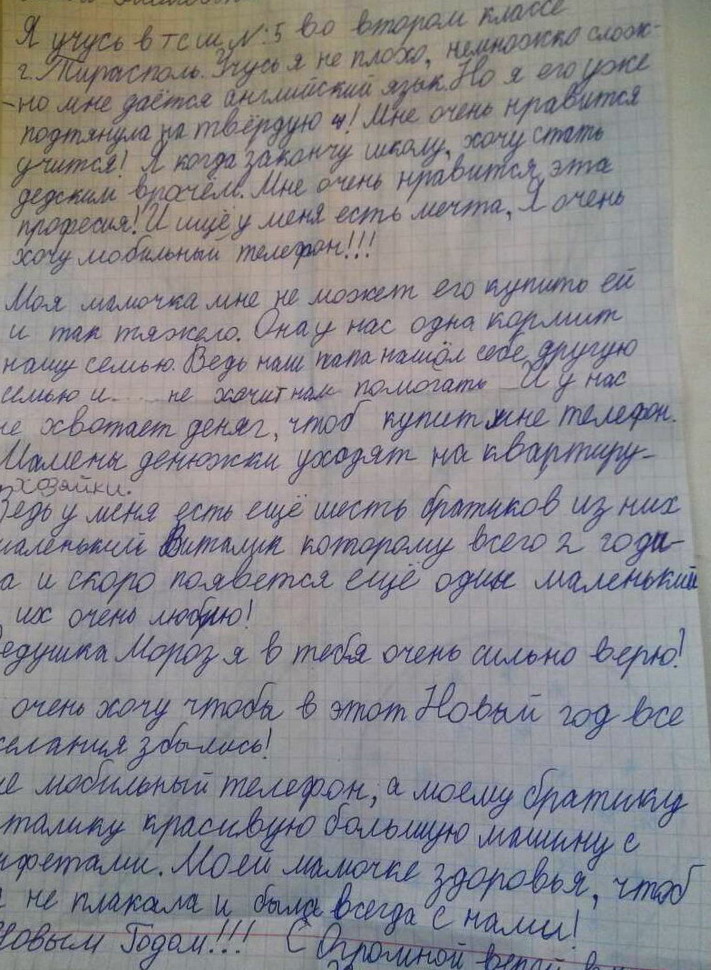 Я учусь в тсш №:5 во втором классе
г. Тирасполь. Учусь я не плохо, немножко слож-
-но мне даётся английский язык. Но я его уже
подтянула на твёрдую 4! Мне очень нравится
учится! Я когда закончу школу, хочу стать
дедским врачём. Мне очень нравится эта
професия! И ищё у меня есть мечта, Я очень
хочу мобильный телефон!!!
Моя мамочка мне не может его купить ей
и так тяжело. Она у нас одна кормит
нашу семью. Ведь наш папа нашёл себе другую
семью и .... не хочит нам помогать И у нас
не хвотает деняг, чтоб купит мне телефон.
Мамены денюжки уходят на квартиру-
хозяйки.
Ведь у меня есть ещё шесть братиков из них
маленький Виталик которому всего 2 годи-
а и скоро появется ещё один маленький
их очень люблю!
Дедушка Мороз я в тебя очень сильно верю!
очень хочу чтобы в этот Новый год все
желания збылись!
не мобильный телефон, а моему братику
талику красивую большую машину с
нфетами. Моей мамочке здоровья, чтоб
не плакала и была всегда с нами!
Новым Годом!!! С Огромной верой в